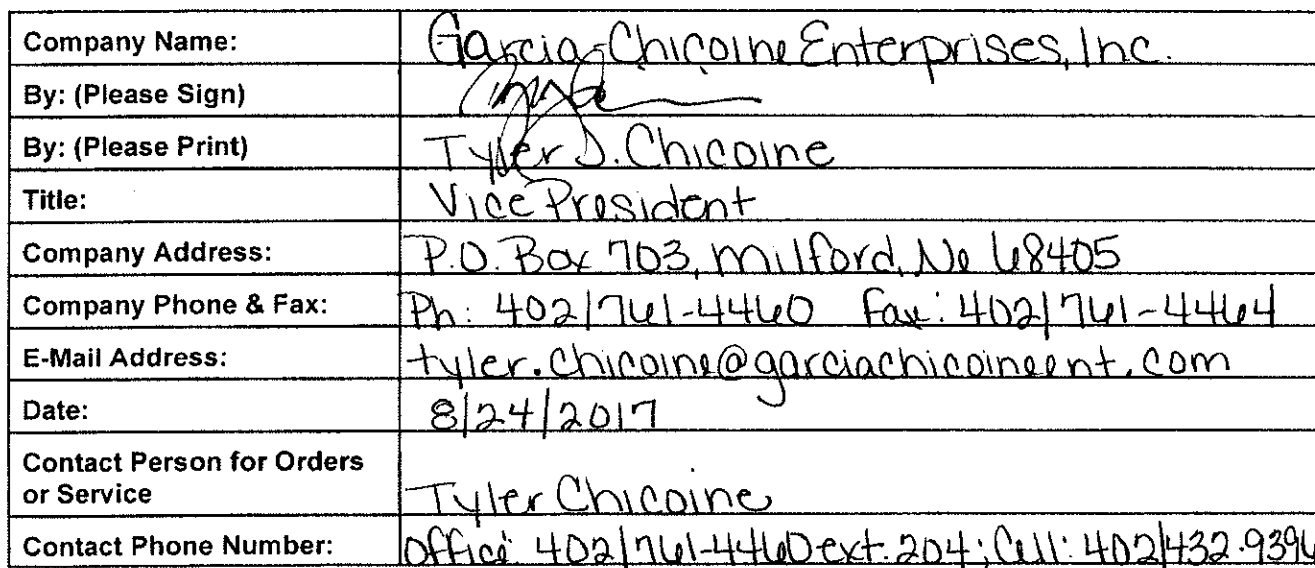 Company Name: Garcia-Chicoine Enterprises, Inc.
By: (Please Sign)
By: (Please Print) Tyler J. Chicoine
Title: Vice President
Company Address: P.O. Box 703, Milford, Ne 68405
Company Phone & Fax: Ph: 402/761-4460 Fax: 402/761-4464
E-Mail Address: tyler.chicoine@garciachicoineent.com
Date: 8/24/2017
Contact Person for Orders
or Service Tyler Chicoine
Contact Phone Number: Office: 402/761-4460 ext. 204; Cell: 402/432.9396